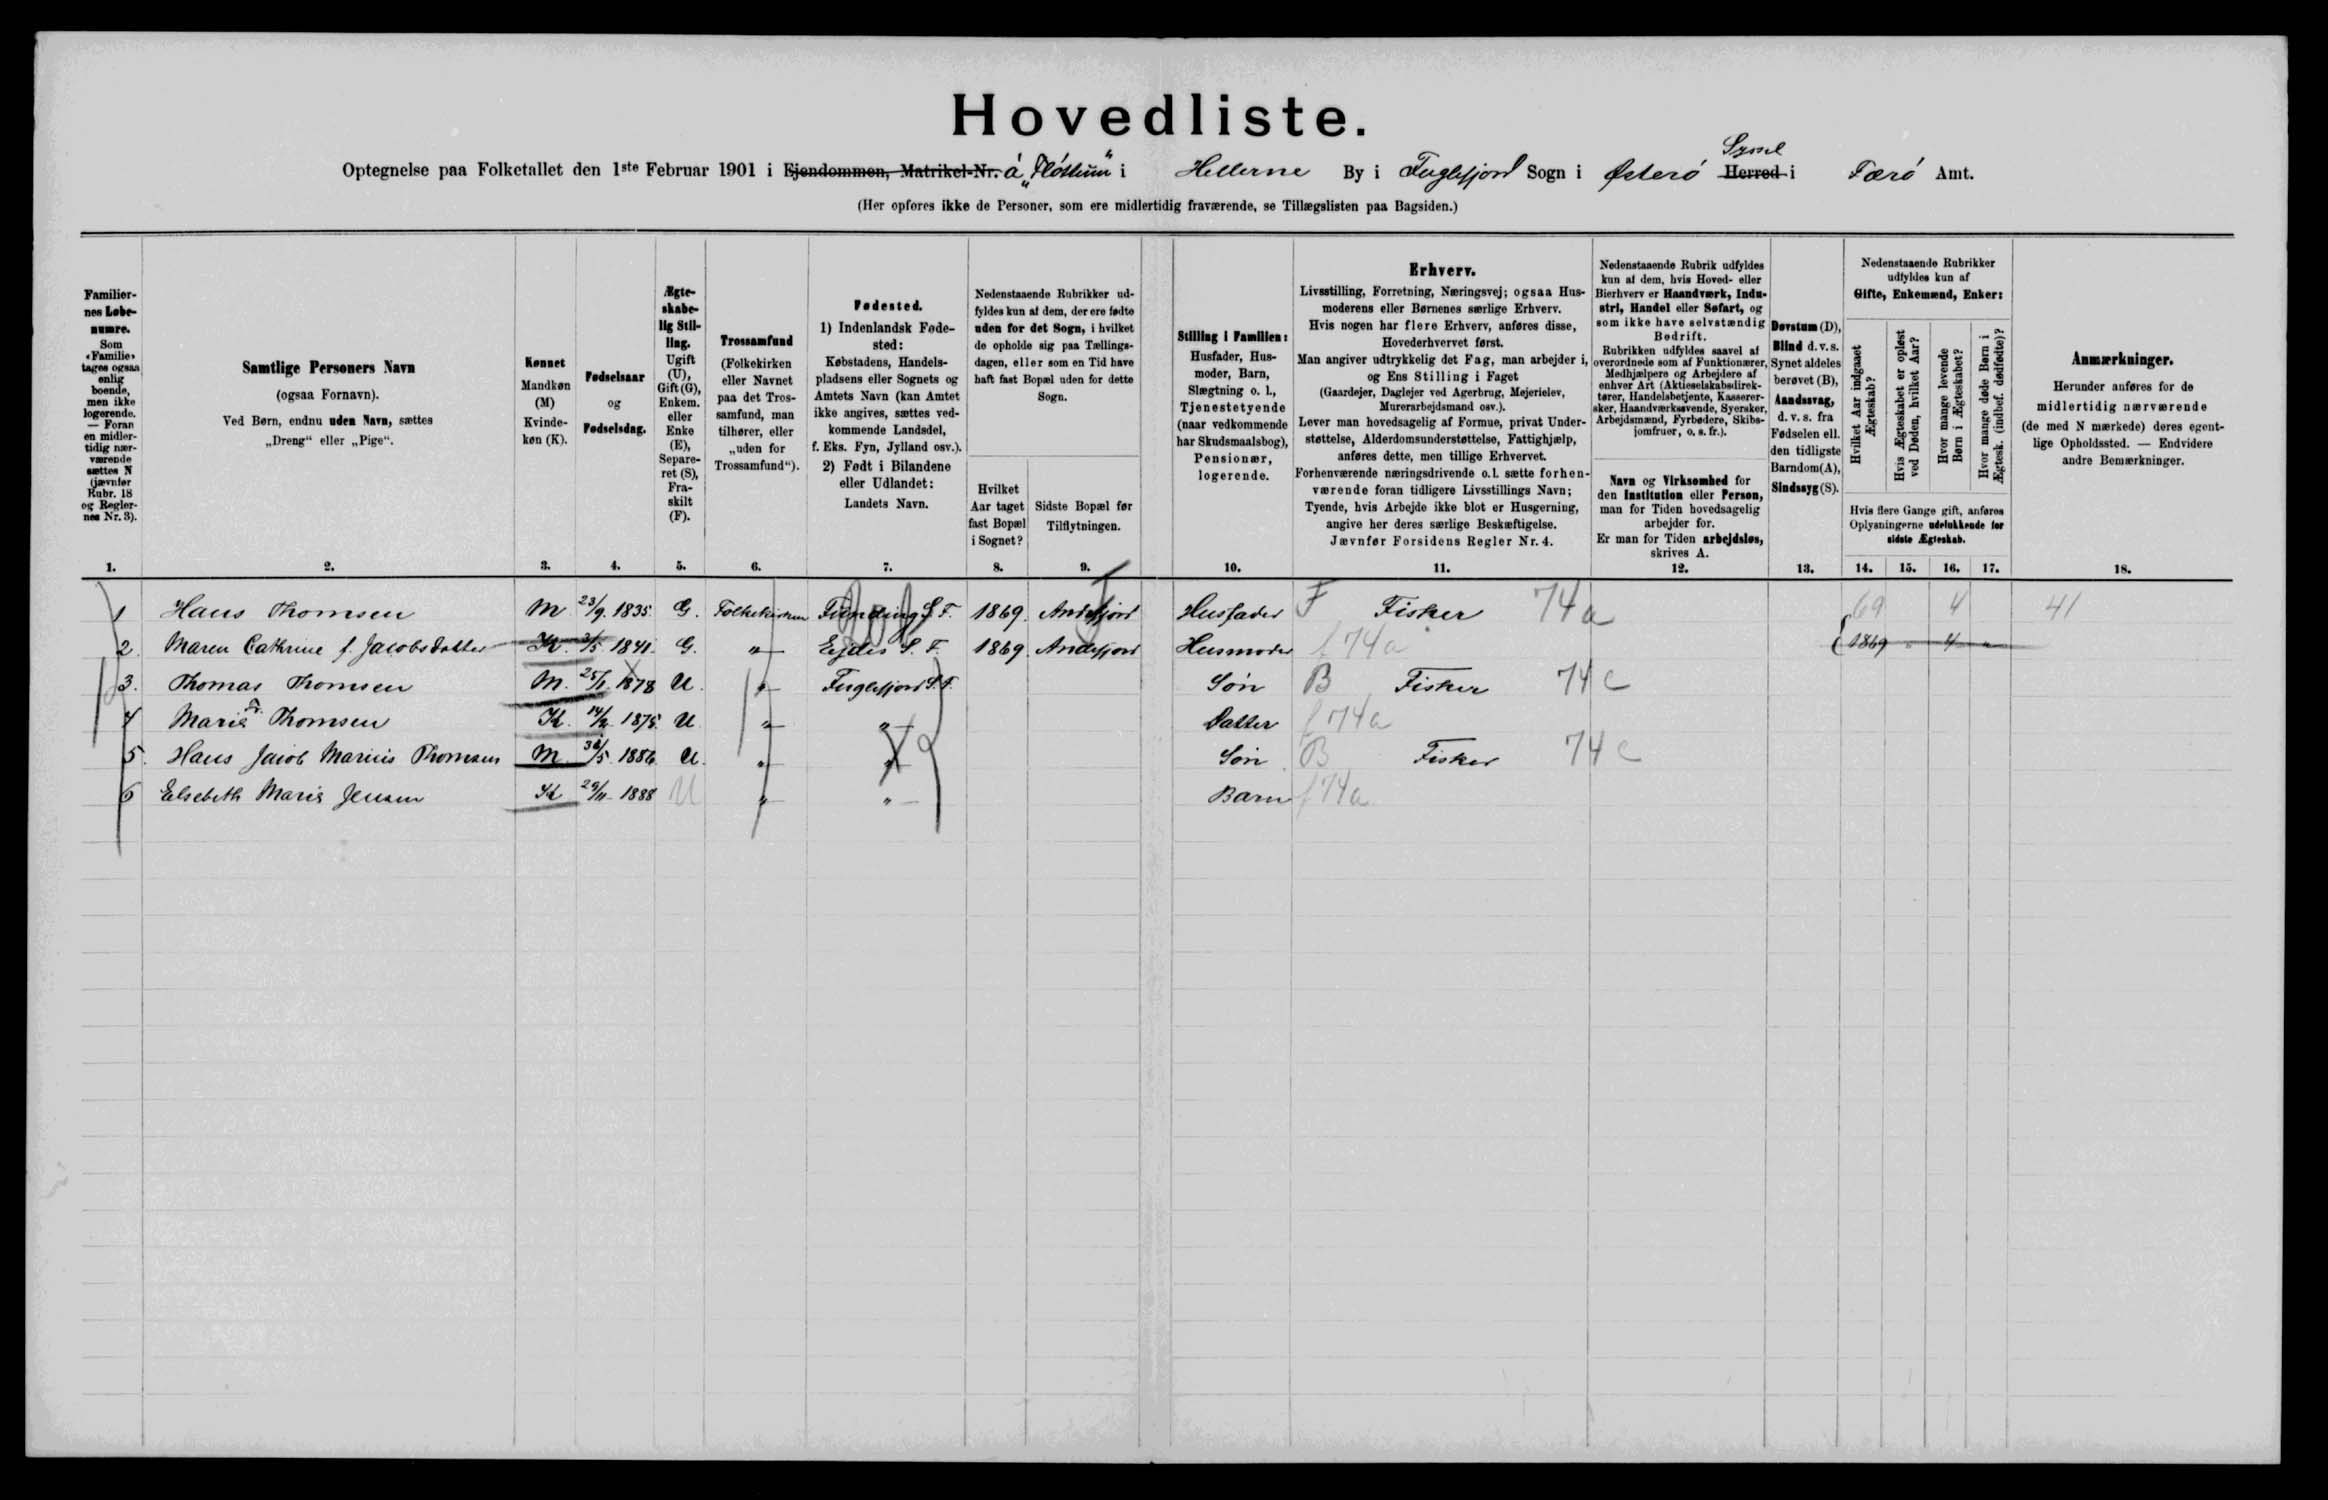 Hovedliste.
Syssel
Optegnelse paa Folketallet den 1ste Februar 1901 i Ejendommen, Matrikel-Nr. á i Hellerne By i Fuglefjord Sogn i Østerö Herred i Færö Amt.
(Her opføres ikke de Personer, som ere midlertidig fraværende, se Tillægslisten paa Bagsiden.)
Familiernes Løbenumre.
Som «Familie» tages ogsaa enlig boende, men ikke logerende. — Foran en midlertidig nærværende sættes N (jævnfør Rubr. 18 og Reglernes Nr. 3).
Samtlige Personers Navn
(ogsaa Fornavn).
Ved Børn, endnu uden Navn, sættes
„Dreng“ eller „Pige“.
Kønnet
Mandkøn (M)
Kvindekøn (K).
Fødselsaar
og
Fødselsdag.
Ægteskabelig Stilling.
Ugift (U), Gift (G), Enkem. eller Enke (E), Separeret (S), Fraskilt (F).
Trossamfund
(Folkekirken eller Navnet paa det Trossamfund, man tilhører, eller „uden for Trossamfund“).
Fødested.
1) Indenlandsk Fødested:
Købstadens, Handelspladsens eller Sognets og Amtets Navn (kan Amtet ikke angives, sættes vedkommende Landsdel, f. Eks. Fyn, Jylland osv.).
2) Født i Bilandene eller Udlandet:
Landets Navn.
Nedenstaaende Rubrikker udfyldes kun af dem, der ere fødte uden for det Sogn, i hvilket de opholde sig paa Tællingsdagen, eller som en Tid have haft fast Bopæl uden for dette Sogn.
Hvilket Aar taget fast Bopæl i Sognet?
Sidste Bopæl før Tilflytningen.
Stilling i Familien:
Husfader, Husmoder, Barn, Slægtning o. l., Tjenestetyende (naar vedkommende har Skudsmaalsbog), Pensionær, logerende.
Erhverv.
Livsstilling, Forretning, Næringsvej; ogsaa Husmoderens eller Børnenes særlige Erhverv.
Hvis nogen har flere Erhverv, anføres disse, Hovederhvervet først.
Man angiver udtrykkelig det Fag, man arbejder i, og Ens Stilling i Faget
(Gaardejer, Daglejer ved Agerbrug, Mejerielev, Murerarbejdsmand osv.).
Lever man hovedsagelig af Formue, privat Understøttelse, Alderdomsunderstøttelse, Fattighjælp, anføres dette, men tillige Erhvervet.
Forhenværende næringsdrivende o.l. sætte forhenværende foran tidligere Livsstillings Navn;
Tyende, hvis Arbejde ikke blot er Husgerning, angive her deres særlige Beskæftigelse.
Jævnfør Forsidens Regler Nr. 4.
Nedenstaaende Rubrik udfyldes kun af dem, hvis Hoved- eller Bierhverv er Haandværk, Industri, Handel eller Søfart, og som ikke have selvstændig Bedrift.
Rubrikken udfyldes saavel af overordnede som af Funktionærer, Medhjælpere og Arbejdere af enhver Art (Aktieselskabsdirektører, Handelsbetjente, Kasserersker, Haandværkssvende, Syersker, Arbejdsmænd, Fyrbødere, Skibsjomfruer, o. s. fr.).
Navn og Virksomhed for den Institution eller Person, man for Tiden hovedsagelig arbejder for.
Er man for Tiden arbejdsløs, skrives A.
Døvstum (D), Blind d. v. s. Synet aldeles berøvet (B), Aandssvag, d. v. s. fra Fødselen ell. den tidligste Barndom (A), Sindssyg (S).
Nedenstaaende Rubrikker udfyldes kun af
Gifte, Enkemænd, Enker:
Hvilket Aar indgaaet Ægteskab?
Hvis Ægteskabet er opløst ved Døden, hvilket Aar?
Hvor mange levende Børn i Ægteskabet?
Hvor mange døde Børn i Ægtesk. (indbef. dødfødte)?
Hvis flere Gange gift, anføres Oplysningerne udelukkende for sidste Ægteskab.
Anmærkninger.
Herunder anføres for de midlertidig nærværende (de med N mærkede) deres egentlige Opholdssted. — Endvidere andre Bemærkninger.
1. 2. 3. 4. 5. 6. 7. 8. 9. 10. 11. 12. 13. 14. 15. 16. 17. 18.
1 Hans Thomsen M 23/9. 1835. G. Folkekirken Funding S. F. 1869. Andefjord Husfader F Fisker 74 a 69 4 41
2. Maren Cathrine f. Jacobsdatter K. 1841. G. " Ejdes S. F. 1869. Andefjord Husmoder f 74a 1869 " 4 "
3. Thomas Thomsen M. 1878 U. " Fuglefjord S. F. Søn B Fisker 74 c
4 Marie Thomsen K. 1875. U " " Datter f 74a
5. Hans Jacob Marius Thomsen M 1886. U. " " Søn B Fisker 74 c
6 Elsebeth Marie Jensen K 29/11 1888 U " " Barn f 74a